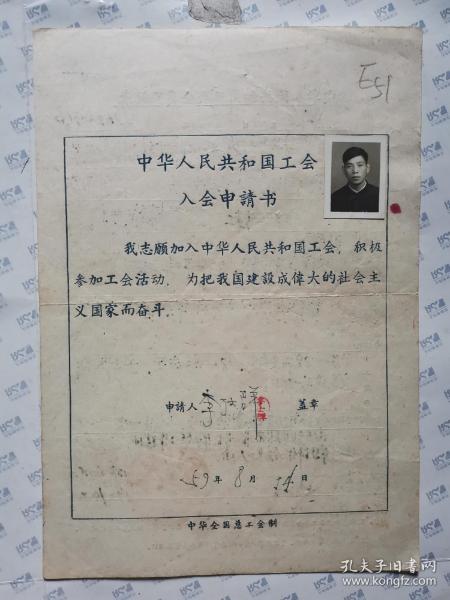 E51
中华人民共和国工会
入会申請书
我志願加入中华人民共和国工会，积极
参加工会活动，为把我国建設成偉大的社会主
义国家而奋斗。
申請人 李 盖章
59年8月 日
中华全国总工会制
孔夫子旧书网
www.kongfz.com